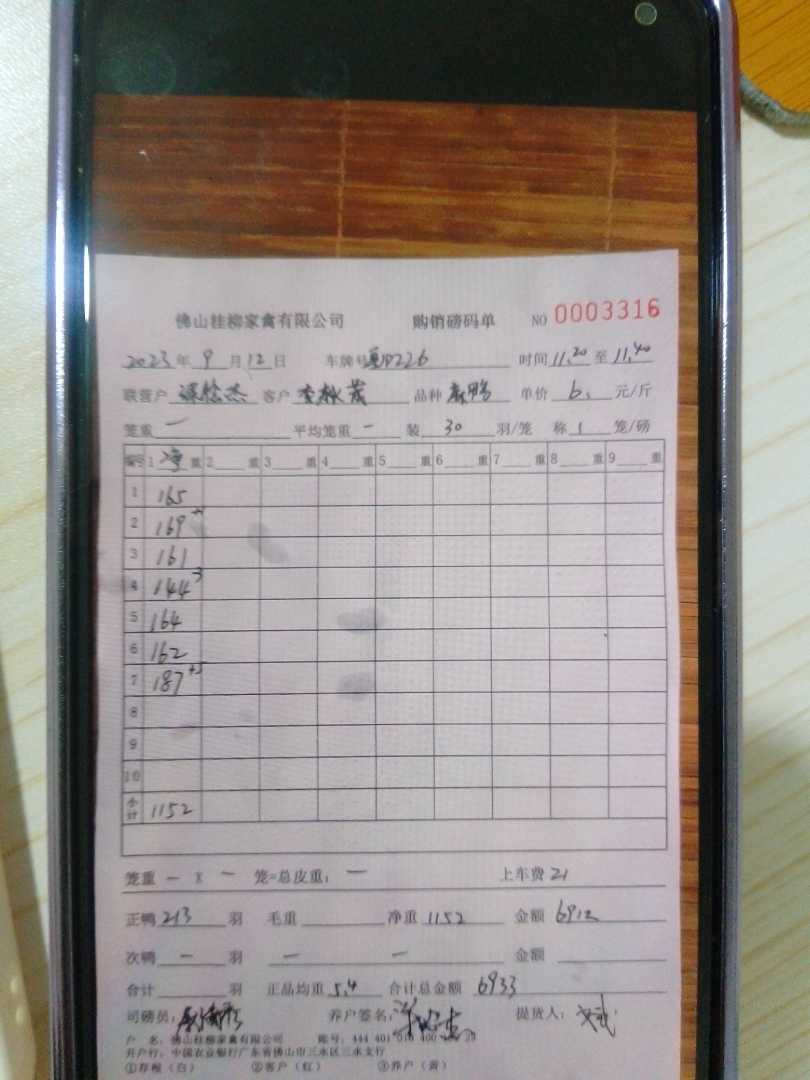 佛山桂柳家禽有限公司 购销磅码单 NO 0003316
2023 年 9 月 12 日 车牌号 D226 时间 11.20 至 11.40
联营户 客户 品种 麻鸭 单价 6. 元/斤
笼重 一 平均笼重 - 装 30 羽/笼 称 1 笼/磅
编号 1 净 重 2 重 3 重 4 重 5 重 6 重 7 重 8 重 9 重
1 165
2 169
3 161
4 144 3
5 164
6 162
7 187 +5
8
9
10
小计 1152
笼重 一 X 一 笼=总皮重: 一 上车费 21
正鸭 213 羽 毛重 净重 1152 金额 6912
次鸭 一 羽 一 一 金额
合计 羽 正品均重 5.4 合计总金额 6933
司磅员: 养户签名: 提货人:
户 名: 佛山桂柳家禽有限公司 账号: 444 401 010 400
开户行: 中国农业银行广东省佛山市三水区三水支行
①存根(白) ②客户(红) ③养户(黄)